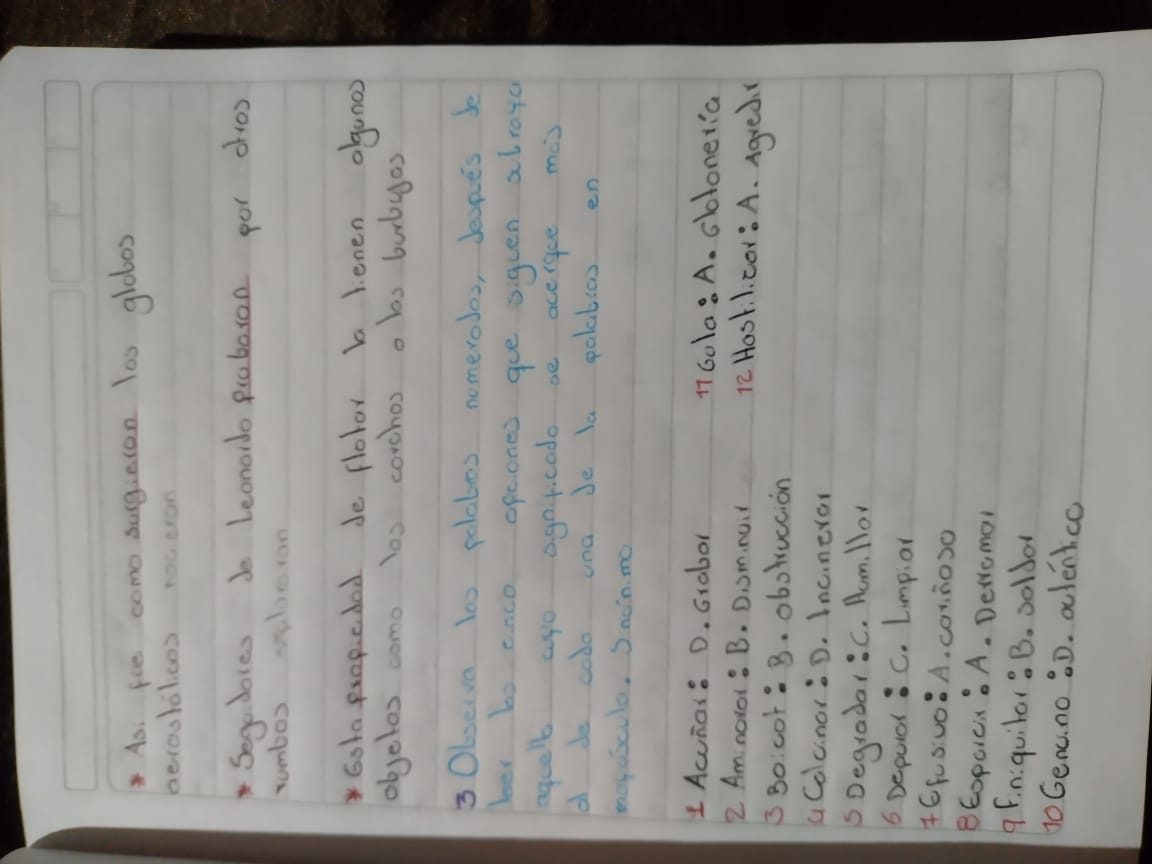 * Asi fue como surgieron los globos
aerostóticos nacieron
* Seguidores de Leonardo probaron por otros
rumbos exploraron
* Esta propiedad de flotar la tienen algunos
objetos como los corchos o las burbujas
3 Observa las palabras numerados, después de
leer las cinco opciones que siguen subraya
aquella cuyo significado se acerque más
al de cada una de la palabras en
mayúscula. Sinónimo
1 Acuñar: D. Grabar
2 Aminorar: B. Disminuir
3 Boicot: B. obstrucción
4 Calcinar: D. Incinerar
5 Degradar: C. Humillar
6 Depurar: C. Limpiar
7 Efusivo: A. cariñoso
8 Esparcir: A. Derramar
9 Finiquitar: B. saldar
10 Genuino: D. auténtico
11 Gula: A. Glotonería
12 Hostilizar: A. Agredir